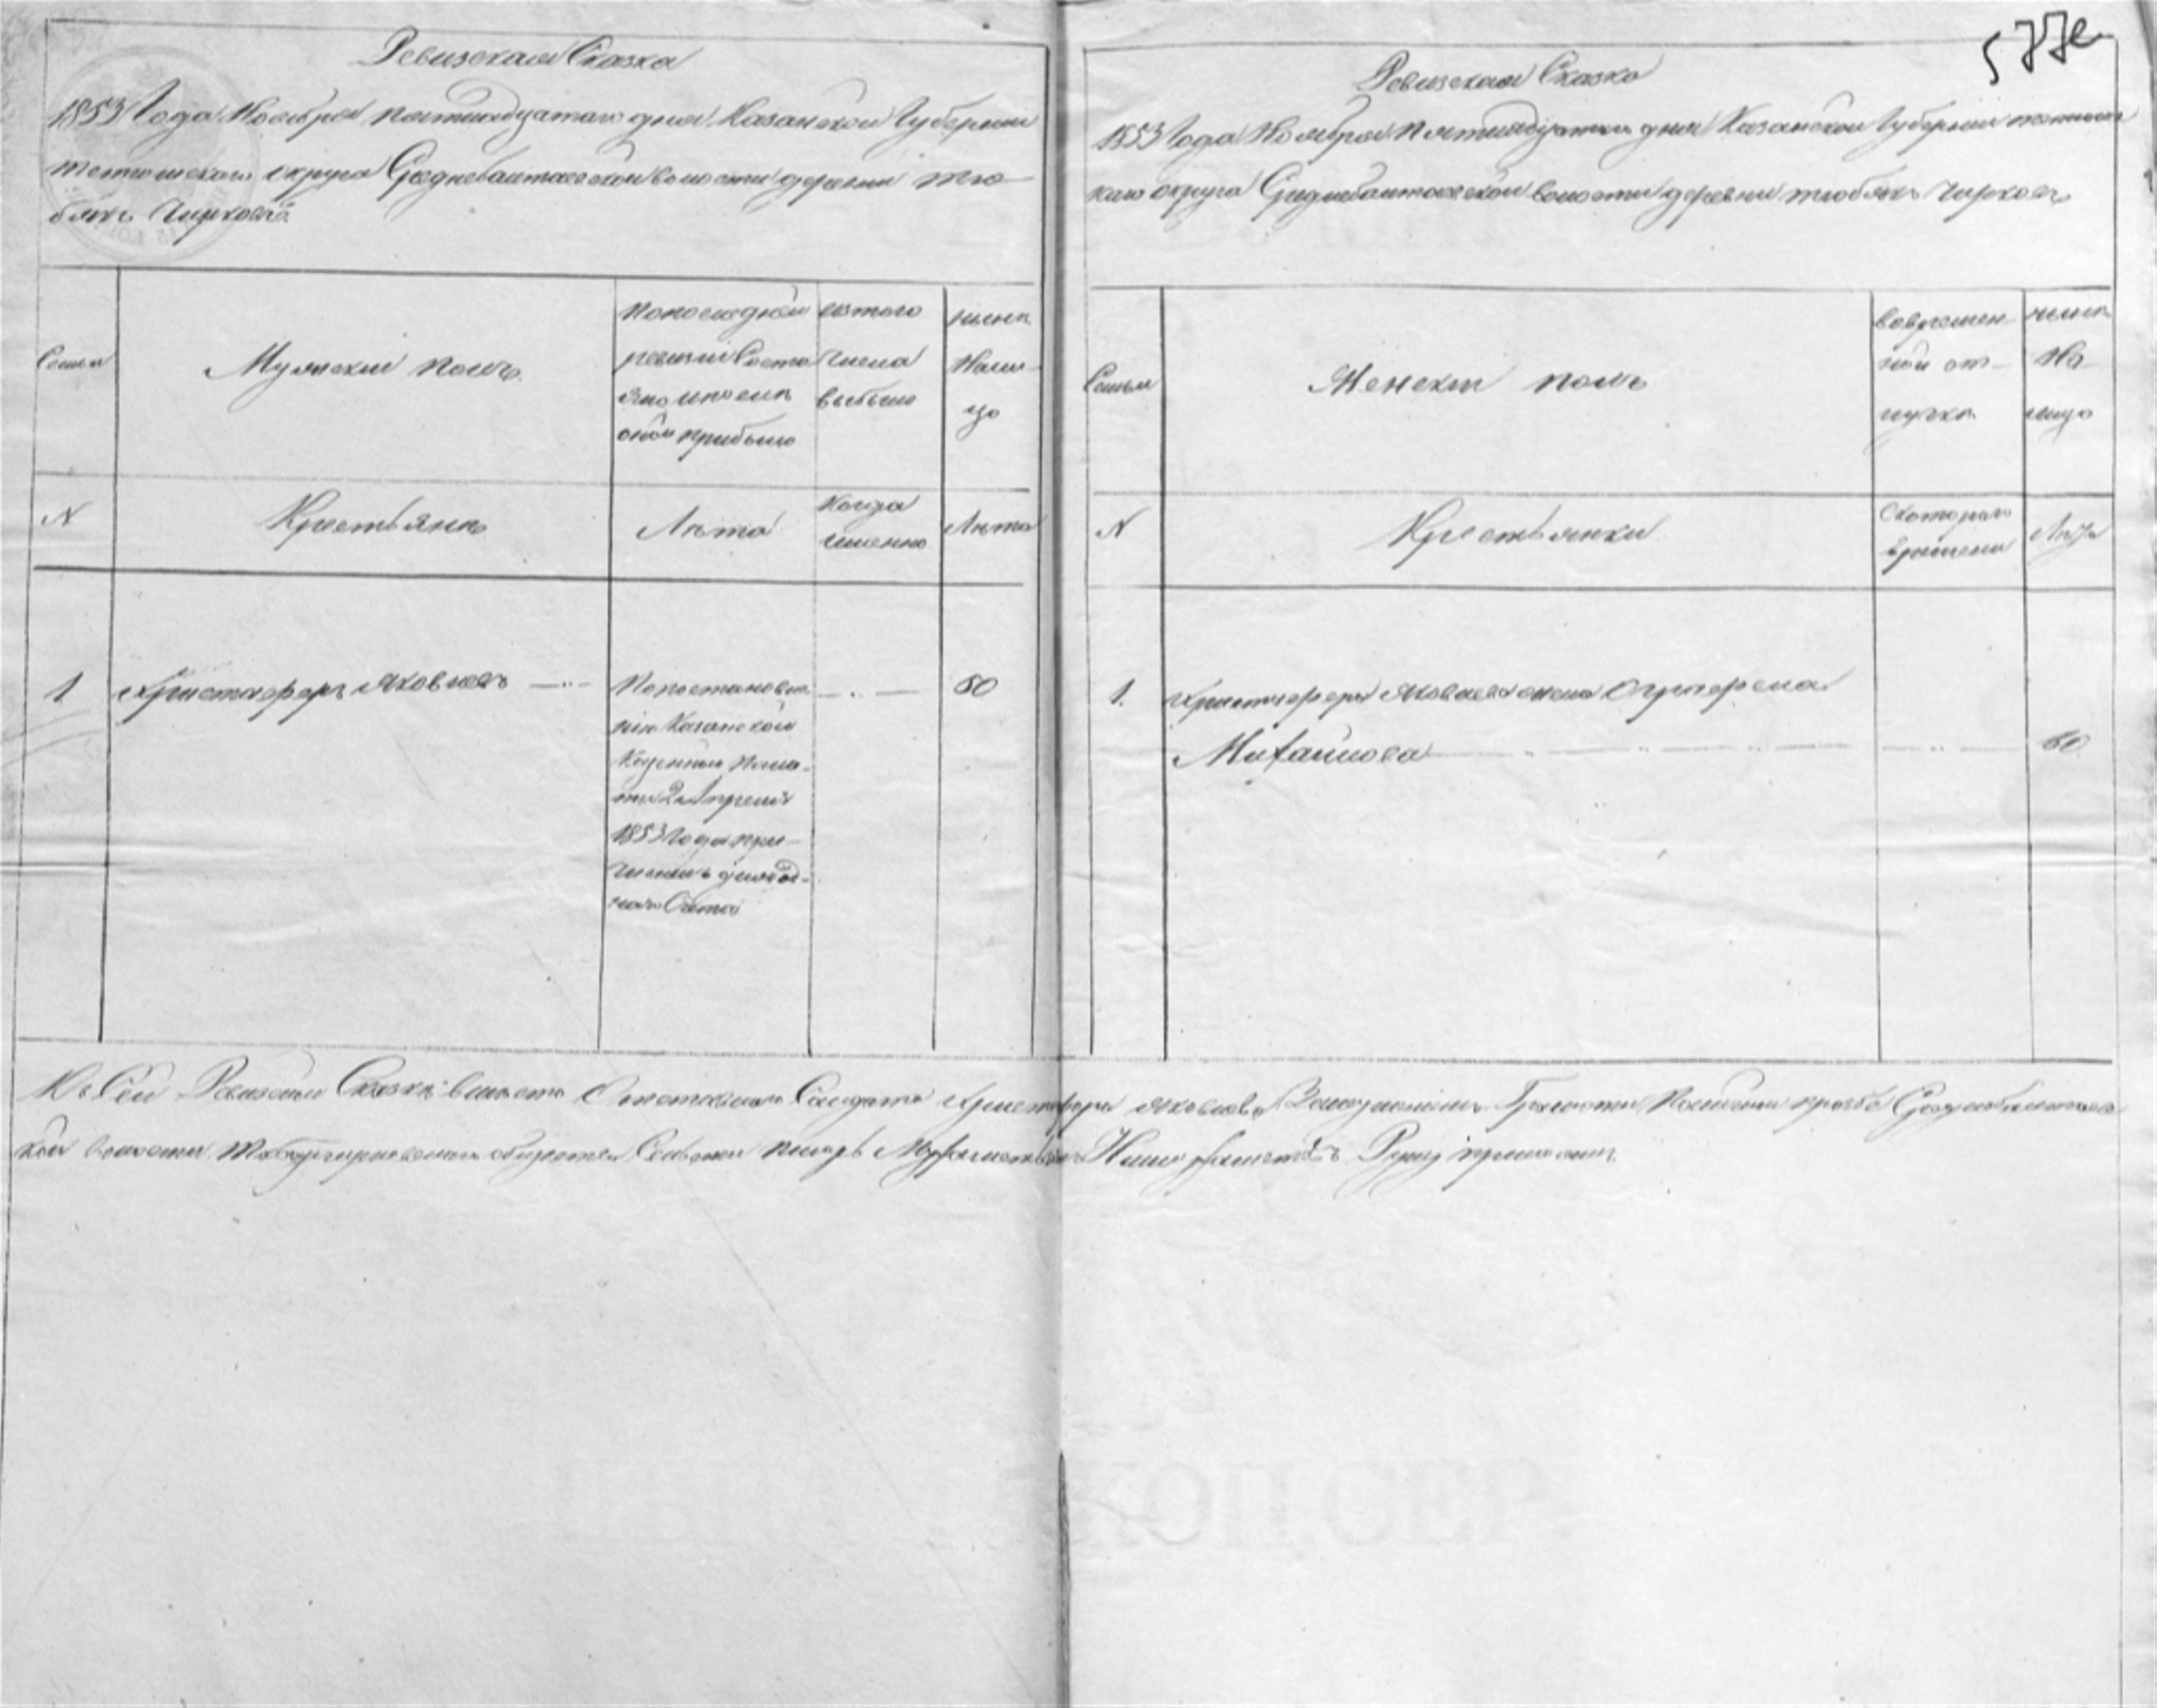 Ревизская Сказка
1853 Года Ноября пятнадцатого дня Казанской Губернии
тетюшскаго округа Среднебалтаевской волости деревни тю-
бякъ Чирковъ
Семьи
Мужескій полъ
По последней
ревизіи Состо
яло и после
оной прибыло
изъ того
числа
выбыло
ныне
Нали-
цо
N
Крестьяне
Лѣта
Когда
именно
Лѣта
1 Христофоръ Яковлевъ
По постановле
нію Казанской
Казенной Пала-
ты 2 Апреля
1853 Года при-
численъ для од-
ного Счета
60
577е
Ревизская Сказка
1853 Года Ноября Пятнадцатаго дня Казанской Губерніи тетюшс
каго округа Среднебалтаевской волости деревни тюбякъ Чирковъ
Семьи
Женскій полъ
во времен-
ной от-
лучке
ныне
На-
лицо
N
Крестьянки
С котораго
времени
Лѣта
1. Христофора Яковлева жена Аграфена
Михайлова
60
Къ Сей Ревизской Сказке вместо Отставнаго Солдата Христофора Яковлева За неуменіемъ Грамоты По личной прозбе Среднебалтаевс
кой волости общества Сельской писарь Руку приложилъ